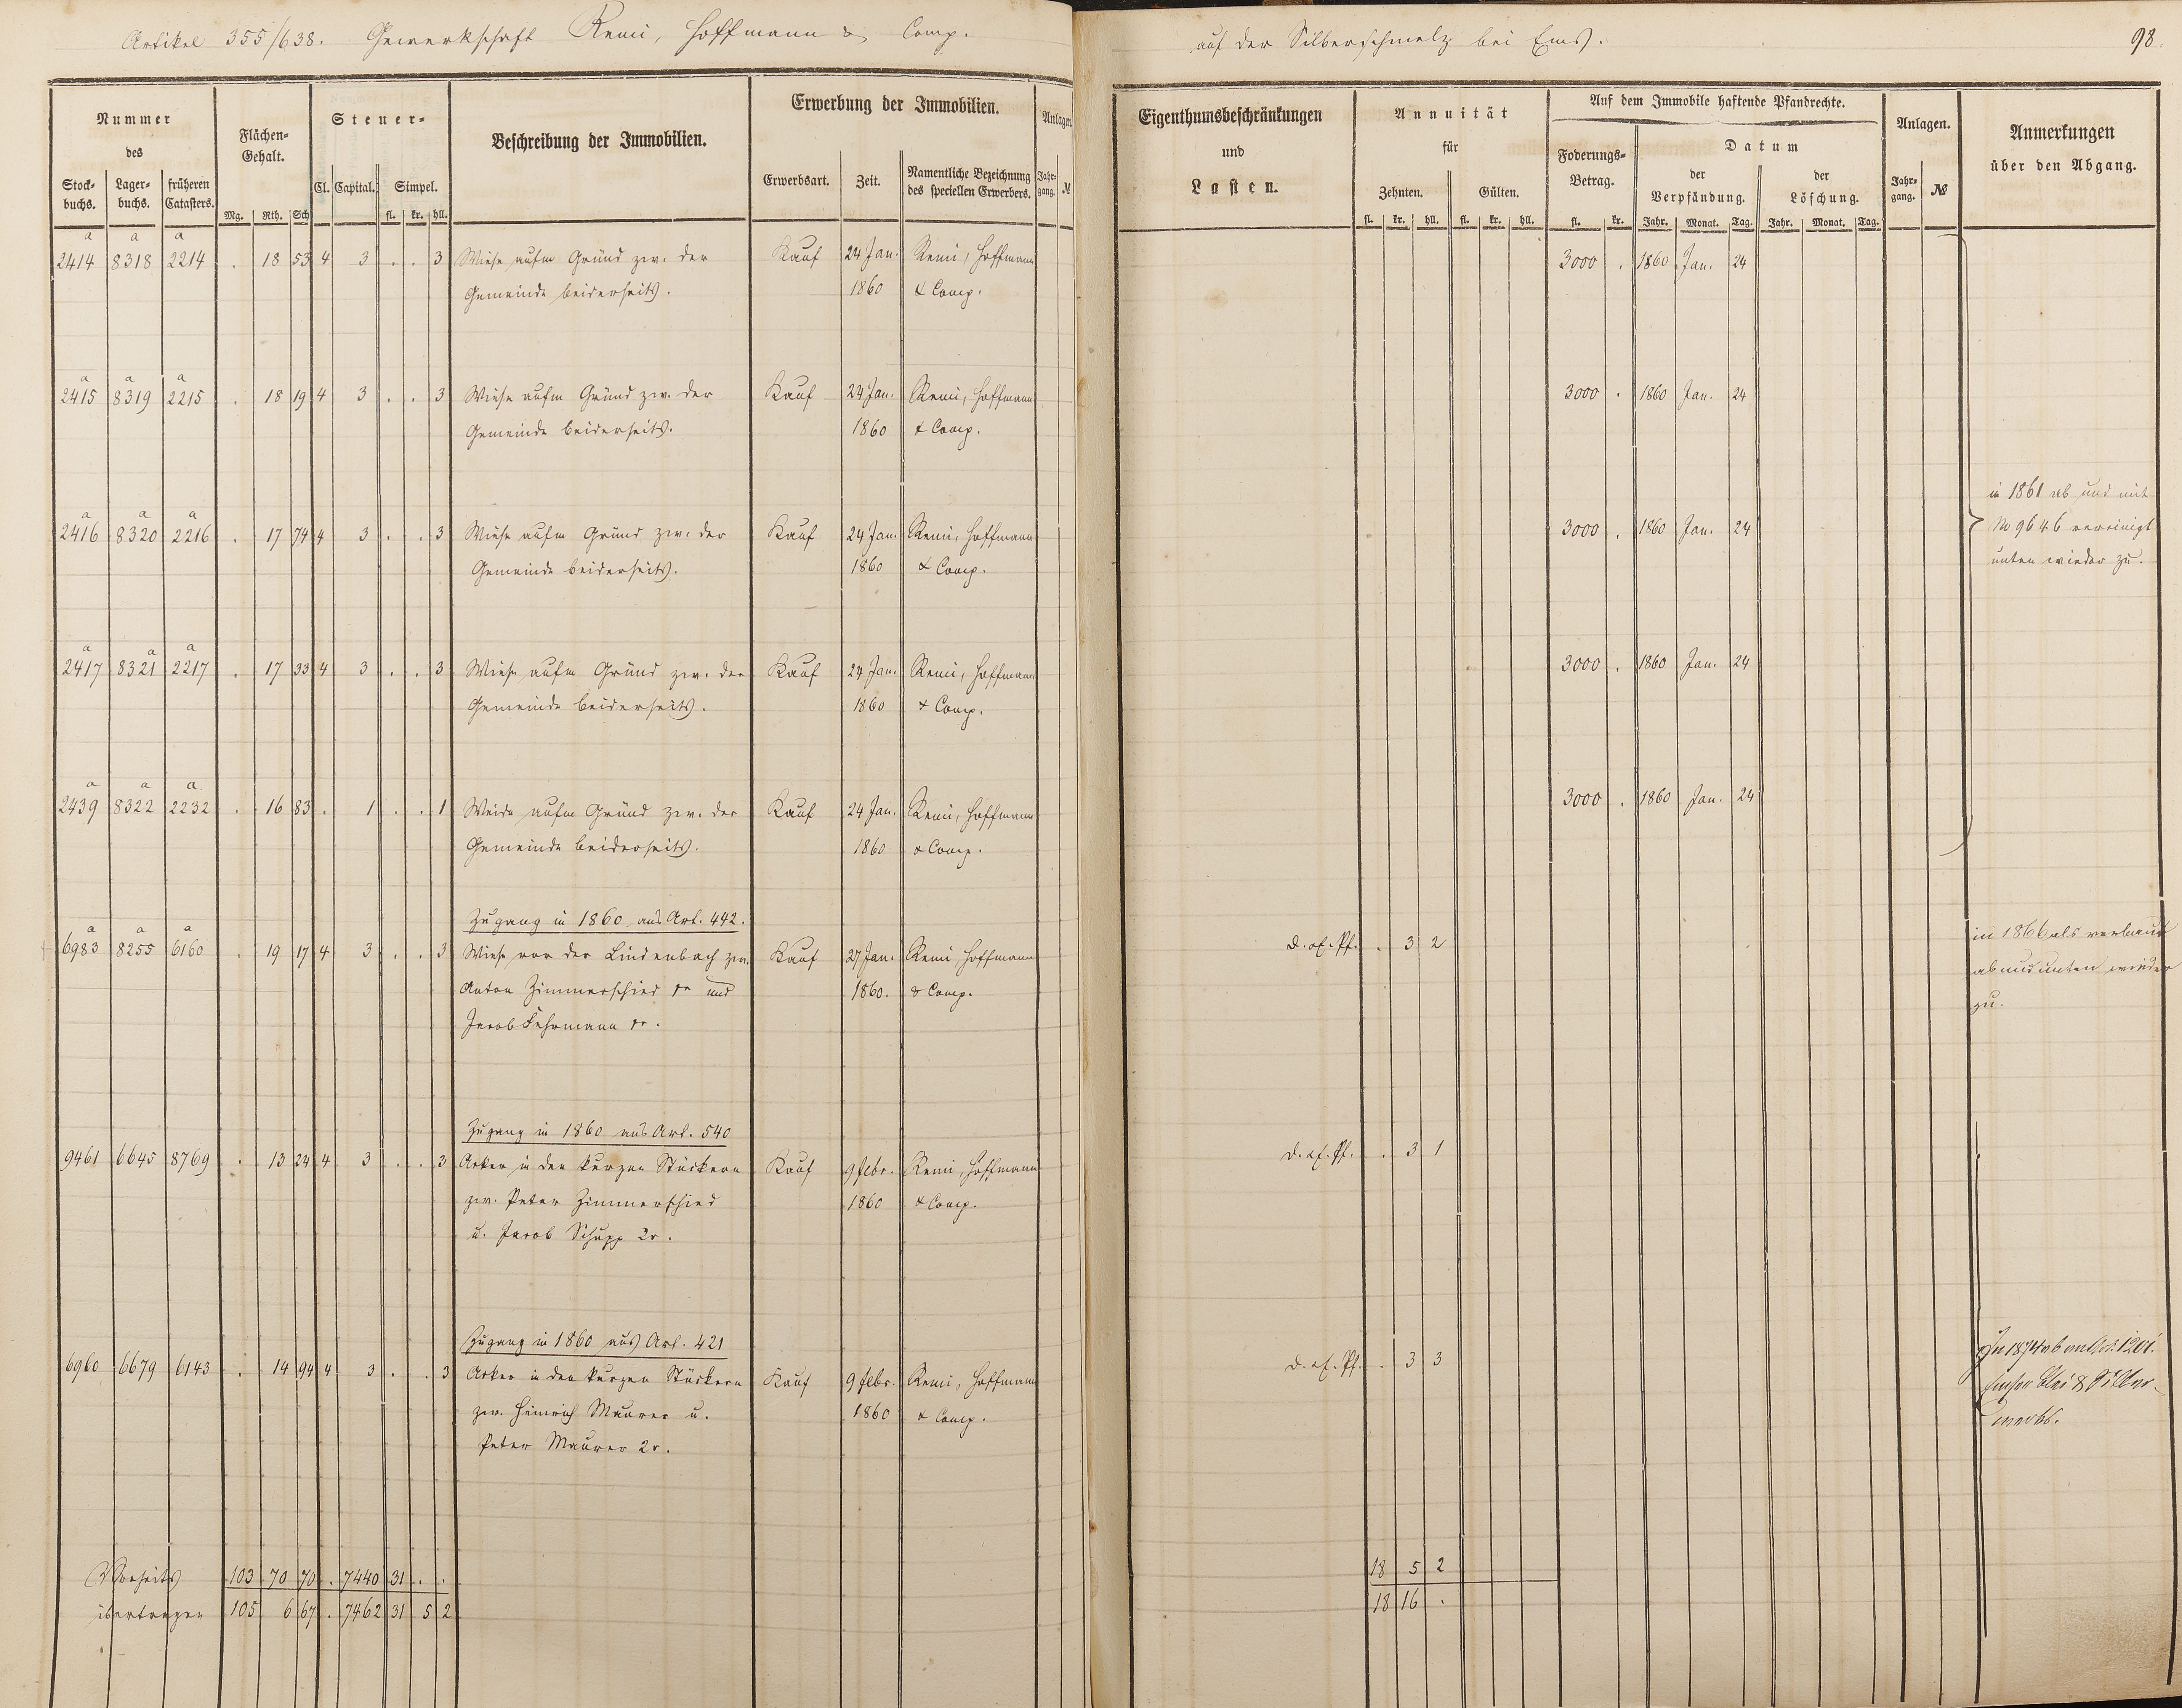 Artikel 355/638. Gewerkschaft Remi, Hoffmann & Comp.
auf der Silberschmelz bei Ems.
98.
Nummer
des
Stock-
buchs.
Lager-
buchs.
früheren
Catasters.
Flächen-
Gehalt.
Mg. Rth. Sch
Steuer-
Cl. Capital. Simpel.
fl. kr. hll.
Beschreibung der Immobilien.
Erwerbung der Immobilien.
Erwerbsart. Zeit.
Namentliche Bezeichnung
des speciellen Erwerbers.
Anlagen.
Jahr-
gang. №
Eigenthumsbeschränkungen
und
Lasten.
Annuität
für
Zehnten. Gülten.
fl. kr. hll. fl. kr. hll.
Auf dem Immobile haftende Pfandrechte.
Foderungs-
Betrag.
fl. kr.
Datum
der
Verpfändung.
der
Löschung.
Jahr. Monat. Tag. Jahr. Monat. Tag.
Anlagen.
Jahr-
gang. №
Anmerkungen
über den Abgang.
a a a
2414 8318 2214 . 18 53 4 3 . . 3 Wiese aufm Gründ zw. der Kauf 24 Jan. Remi, Hoffmann 3000 . 1860 Jan. 24
Gemeinde beiderseits. 1860 & Comp.
a a a
2415 8319 2215 . 18 19 4 3 . . 3 Wiese aufm Gründ zw. der Kauf 24 Jan. Remi, Hoffmann 3000 . 1860 Jan. 24
Gemeinde beiderseits. 1860 & Comp.
in 1861 ab und mit
a a a
2416 8320 2216 . 17 74 4 3 . . 3 Wiese aufm Gründ zw. der Kauf 24 Jan. Remi, Hoffmann 3000 . 1860 Jan. 24 № 9646 vereinigt
Gemeinde beiderseits. 1860 & Comp. unten wieder zu.
a a a
2417 8321 2217 . 17 33 4 3 . . 3 Wiese aufm Gründ zw. der Kauf 24 Jan. Remi, Hoffmann 3000 . 1860 Jan. 24
Gemeinde beiderseits. 1860 & Comp.
a a a
2439 8322 2232 . 16 83 . 1 . . 1 Weide aufm Gründ zw. der Kauf 24 Jan. Remi, Hoffmann 3000 . 1860 Jan. 24
Gemeinde beiderseits. 1860 & Comp.
Zugang in 1860 aus Art. 442.
a a a
6983 8255 6160 . 19 17 4 3 . . 3 Wiese vor der Lindenbach zw. Kauf 27 Jan. Remi, Hoffmann . 3 2 in 1866 als verbaut
Anton Zimmerschied und 1860. & Comp. ab und unten wieder
Jacob Fuhrmann zu.
Zugang in 1860 aus Art. 540
9461 6645 8769 . 13 24 4 3 . . 3 Acker in den kurzen Stückern Kauf 9 Febr. Remi, Hoffmann . 3 1
zw. Peter Zimmerschied 1860 & Comp.
u. Jacob Schupp 2r.
Zugang in 1860 aus Art. 421
6960 6679 6143 . 14 94 4 3 . . 3 Acker in den kurzen Stückern Kauf 9 Febr. Remi, Hoffmann . 3 3 In 1874 ab an Art. 1201.
zw. Heinrich Maurer u. 1860 & Comp. Emser Blei & Silber-
Peter Maurer 2r. werk.
Vorseits 103 70 70 . 7440 31 . . 18 5 2
übertragen 105 6 67 . 7462 31 5 2 18 16 .